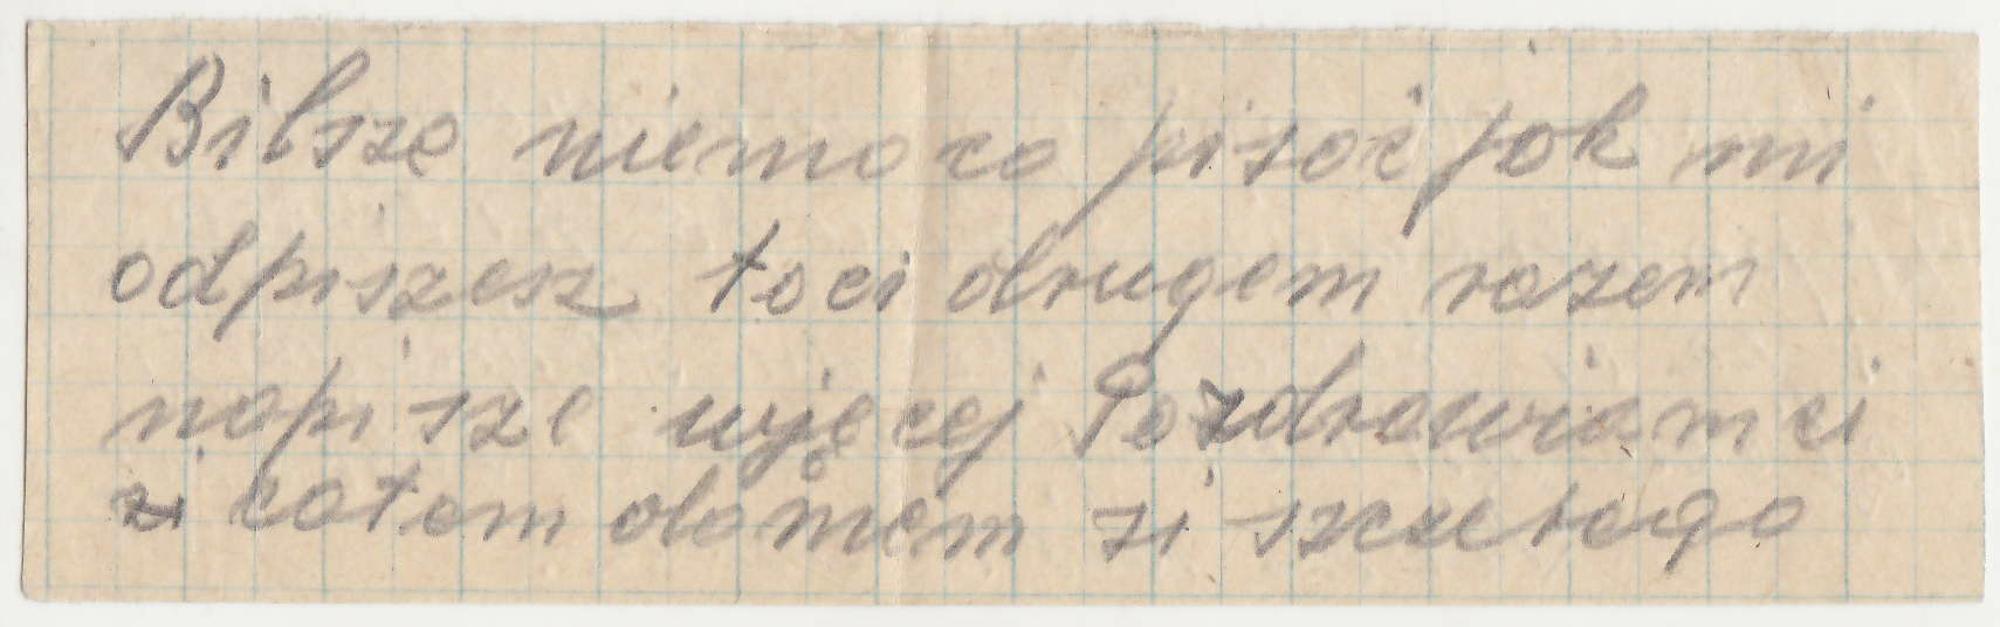 Bilsze niema co pisać jak mi
odpiszesz to ci drugem razem
napisze wjęcej Pozdrawiam ci
zi całem domem zi szczerego